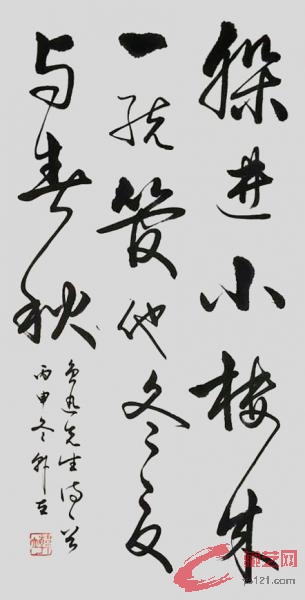 躲进小楼成
一统管他冬夏
与春秋
鲁迅先生诗
丙申冬
艺网
121.com